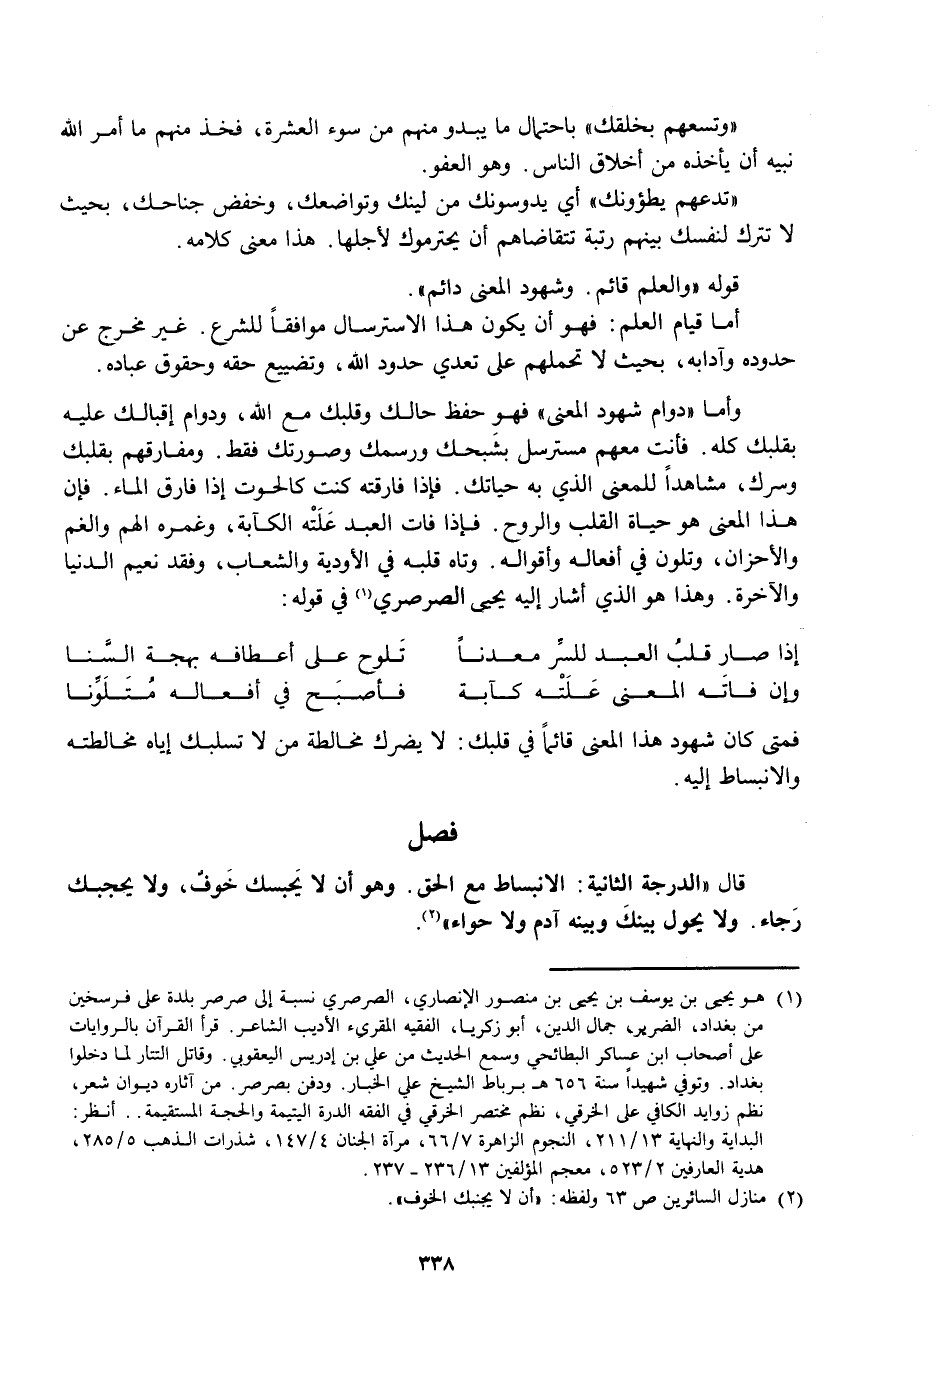 «وتسعهم بخلقك» باحتمال ما يبدو منهم من سوء العشرة، فخذ منهم ما أمر الله
نبيه أن يأخذه من أخلاق الناس. وهو العفو.
«تدعهم يطؤونك» أي يدوسونك من لينك وتواضعك، وخفض جناحك، بحيث
لا تترك لنفسك بينهم رتبة تتقاضاهم أن يحترموك لأجلها. هذا معنى كلامه.
قوله «والعلم قائم. وشهود المعنى دائم».
أما قيام العلم: فهو أن يكون هذا الاسترسال موافقاً للشرع. غير مخرج عن
حدوده وآدابه، بحيث لا تحملهم على تعدي حدود الله، وتضييع حقه وحقوق عباده.
وأما «دوام شهود المعنى» فهو حفظ حالك وقلبك مع الله، ودوام إقبالك عليه
بقلبك كله. فأنت معهم مسترسل بشَبحك ورسمك وصورتك فقط. ومفارقهم بقلبك
وسرك، مشاهداً للمعنى الذي به حياتك. فإذا فارقته كنت كالحوت إذا فارق الماء. فإن
هذا المعنى هو حياة القلب والروح. فإذا فات العبد عَلَتْه الكآبة، وغمره الهم والغم
والأحزان، وتلون في أفعاله وأقواله. وتاه قلبه في الأودية والشعاب، وفقد نعيم الدنيا
والآخرة. وهذا هو الذي أشار إليه يحيى الصرصري(١) في قوله:
إذا صار قلبُ العبد للسرِّ معدناً تَلوح على أعطافه بهجة السَّنا
وإن فاتَه المعنى عَلَتْه كآبة فأصبَح في أفعاله مُتَلَوِّنا
فمتى كان شهود هذا المعنى قائماً في قلبك: لا يضرك مخالطة من لا تسلبك إياه مخالطته
والانبساط إليه.
فصل
قال «الدرجة الثانية: الانبساط مع الحق. وهو أن لا يَحبسك خَوفٌ، ولا يحجبك
رَجاء. ولا يحول بينكَ وبينه آدم ولا حواء»(٢).
(١) هو يحيى بن يوسف بن يحيى بن منصور الإنصاري، الصرصري نسبة إلى صرصر بلدة على فرسخين
من بغداد، الضرير، جمال الدين، أبو زكريا، الفقيه المقرىء الأديب الشاعر. قرأ القرآن بالروايات
على أصحاب ابن عساكر البطائحي وسمع الحديث من علي بن إدريس اليعقوبي. وقاتل التتار لما دخلوا
بغداد. وتوفي شهيداً سنة ٦٥٦ هـ برباط الشيخ علي الخباز. ودفن بصرصر. من آثاره ديوان شعر،
نظم زوايد الكافي على الخرقي، نظم مختصر الخرقي في الفقه الدرة اليتيمة والحجة المستقيمة.. أنظر:
البداية والنهاية ٢١١/١٣، النجوم الزاهرة ٦٦/٧، مرآة الجنان ١٤٧/٤، شذرات الذهب ٢٨٥/٥،
هدية العارفين ٥٢٣/٢، معجم المؤلفين ٢٣٦/١٣ ـ ٢٣٧.
(٢) منازل السائرين ص ٦٣ ولفظه: «أن لا يجنبك الخوف».
٣٣٨